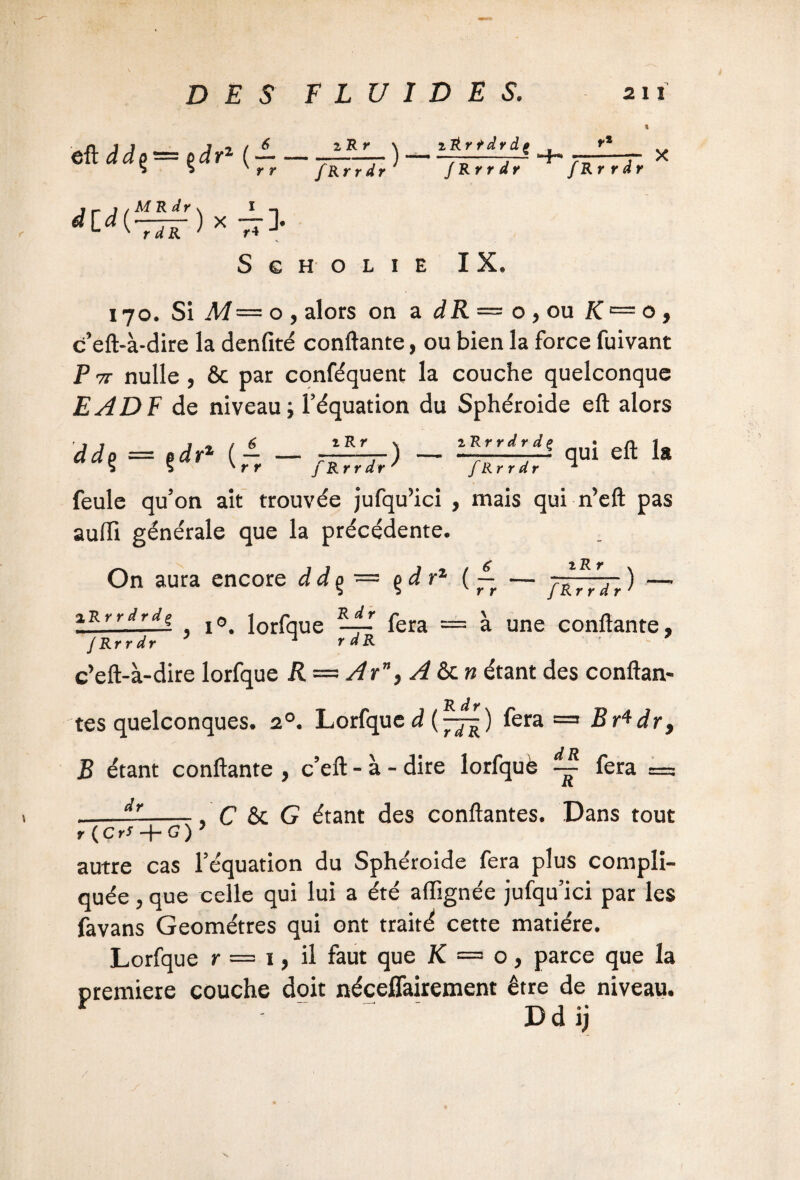 DES FLUIDES. 211
eſt ddρ = ρdr² (6/rr — 2Rr/∫Rrrdr) — 2Rrrdrdρ/∫Rrrdr + r²/∫Rrrdr ×
d[d(MRdr/rdR) × 1/r⁴].
SCHOLIE IX.
170. Si M = o, alors on a dR = o, ou K = o,
c'eſt-à-dire la denſité conſtante, ou bien la force ſuivant
Pπ nulle, & par conſéquent la couche quelconque
EADF de niveau; l'équation du Sphéroide eſt alors
ddρ = ρdr² (6/rr — 2Rr/∫Rrrdr) — 2Rrrdrdρ/∫Rrrdr qui eſt la
ſeule qu'on ait trouvée juſqu'ici, mais qui n'eſt pas
auſſi générale que la précédente.
On aura encore ddρ = ρdr² (6/rr — 2Rr/∫Rrrdr) —
2Rrrdrdρ/∫Rrrdr, 1°. lorſque Rdr/rdR ſera = à une conſtante,
c'eſt-à-dire lorſque R = Arⁿ, A & n étant des conſtan-
tes quelconques. 2°. Lorſque d(Rdr/rdR) ſera = Br⁴dr,
B étant conſtante, c'eſt-à-dire lorſque dR/R ſera =
dr/r(Cr⁵ + G), C & G étant des conſtantes. Dans tout
autre cas l'équation du Sphéroide ſera plus compli-
quée, que celle qui lui a été aſſignée juſqu'ici par les
ſavans Geométres qui ont traité cette matiére.
Lorſque r = 1, il faut que K = o, parce que la
premiere couche doit néceſſairement être de niveau.
Dd ij